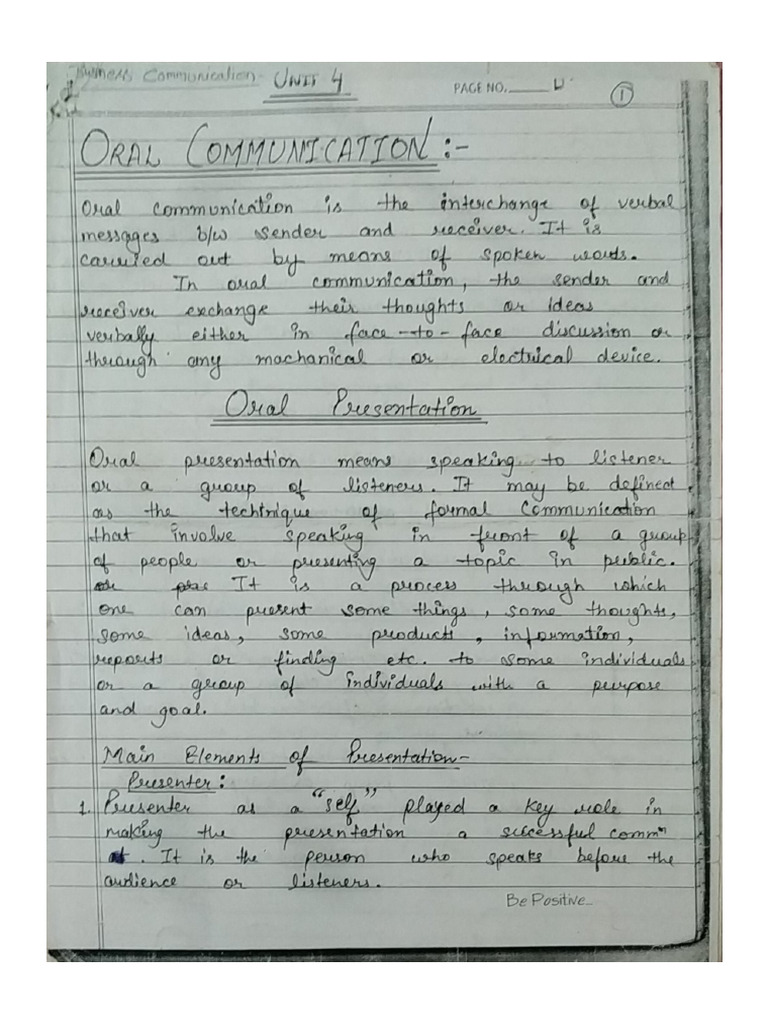 Business Communication - UNIT 4
PAGE NO.
1
ORAL COMMUNICATION :-
Oral communication is the interchange of verbal
messages b/w sender and receiver. It is
carried out by means of spoken words.
In oral communication, the sender and
receiver exchange their thoughts or ideas
verbally either in face-to-face discussion or
through any machanical or electrical device.
Oral Presentation
Oral presentation means speaking to listener
or a group of listeners. It may be defined
as the technique of formal communication
that involve speaking in front of a group
of people or presenting a topic in public.
It is a process through which
one can present some things, some thoughts,
some ideas, some products, information,
reports or finding etc. to some individuals
or a group of individuals with a purpose
and goal.
Main Elements of Presentation-
Presenter:
1. Presenter as a "self" played a key role in
making the presentation a sucessful commn
. It is the person who speaks before the
audience or listeners.
Be Positive...